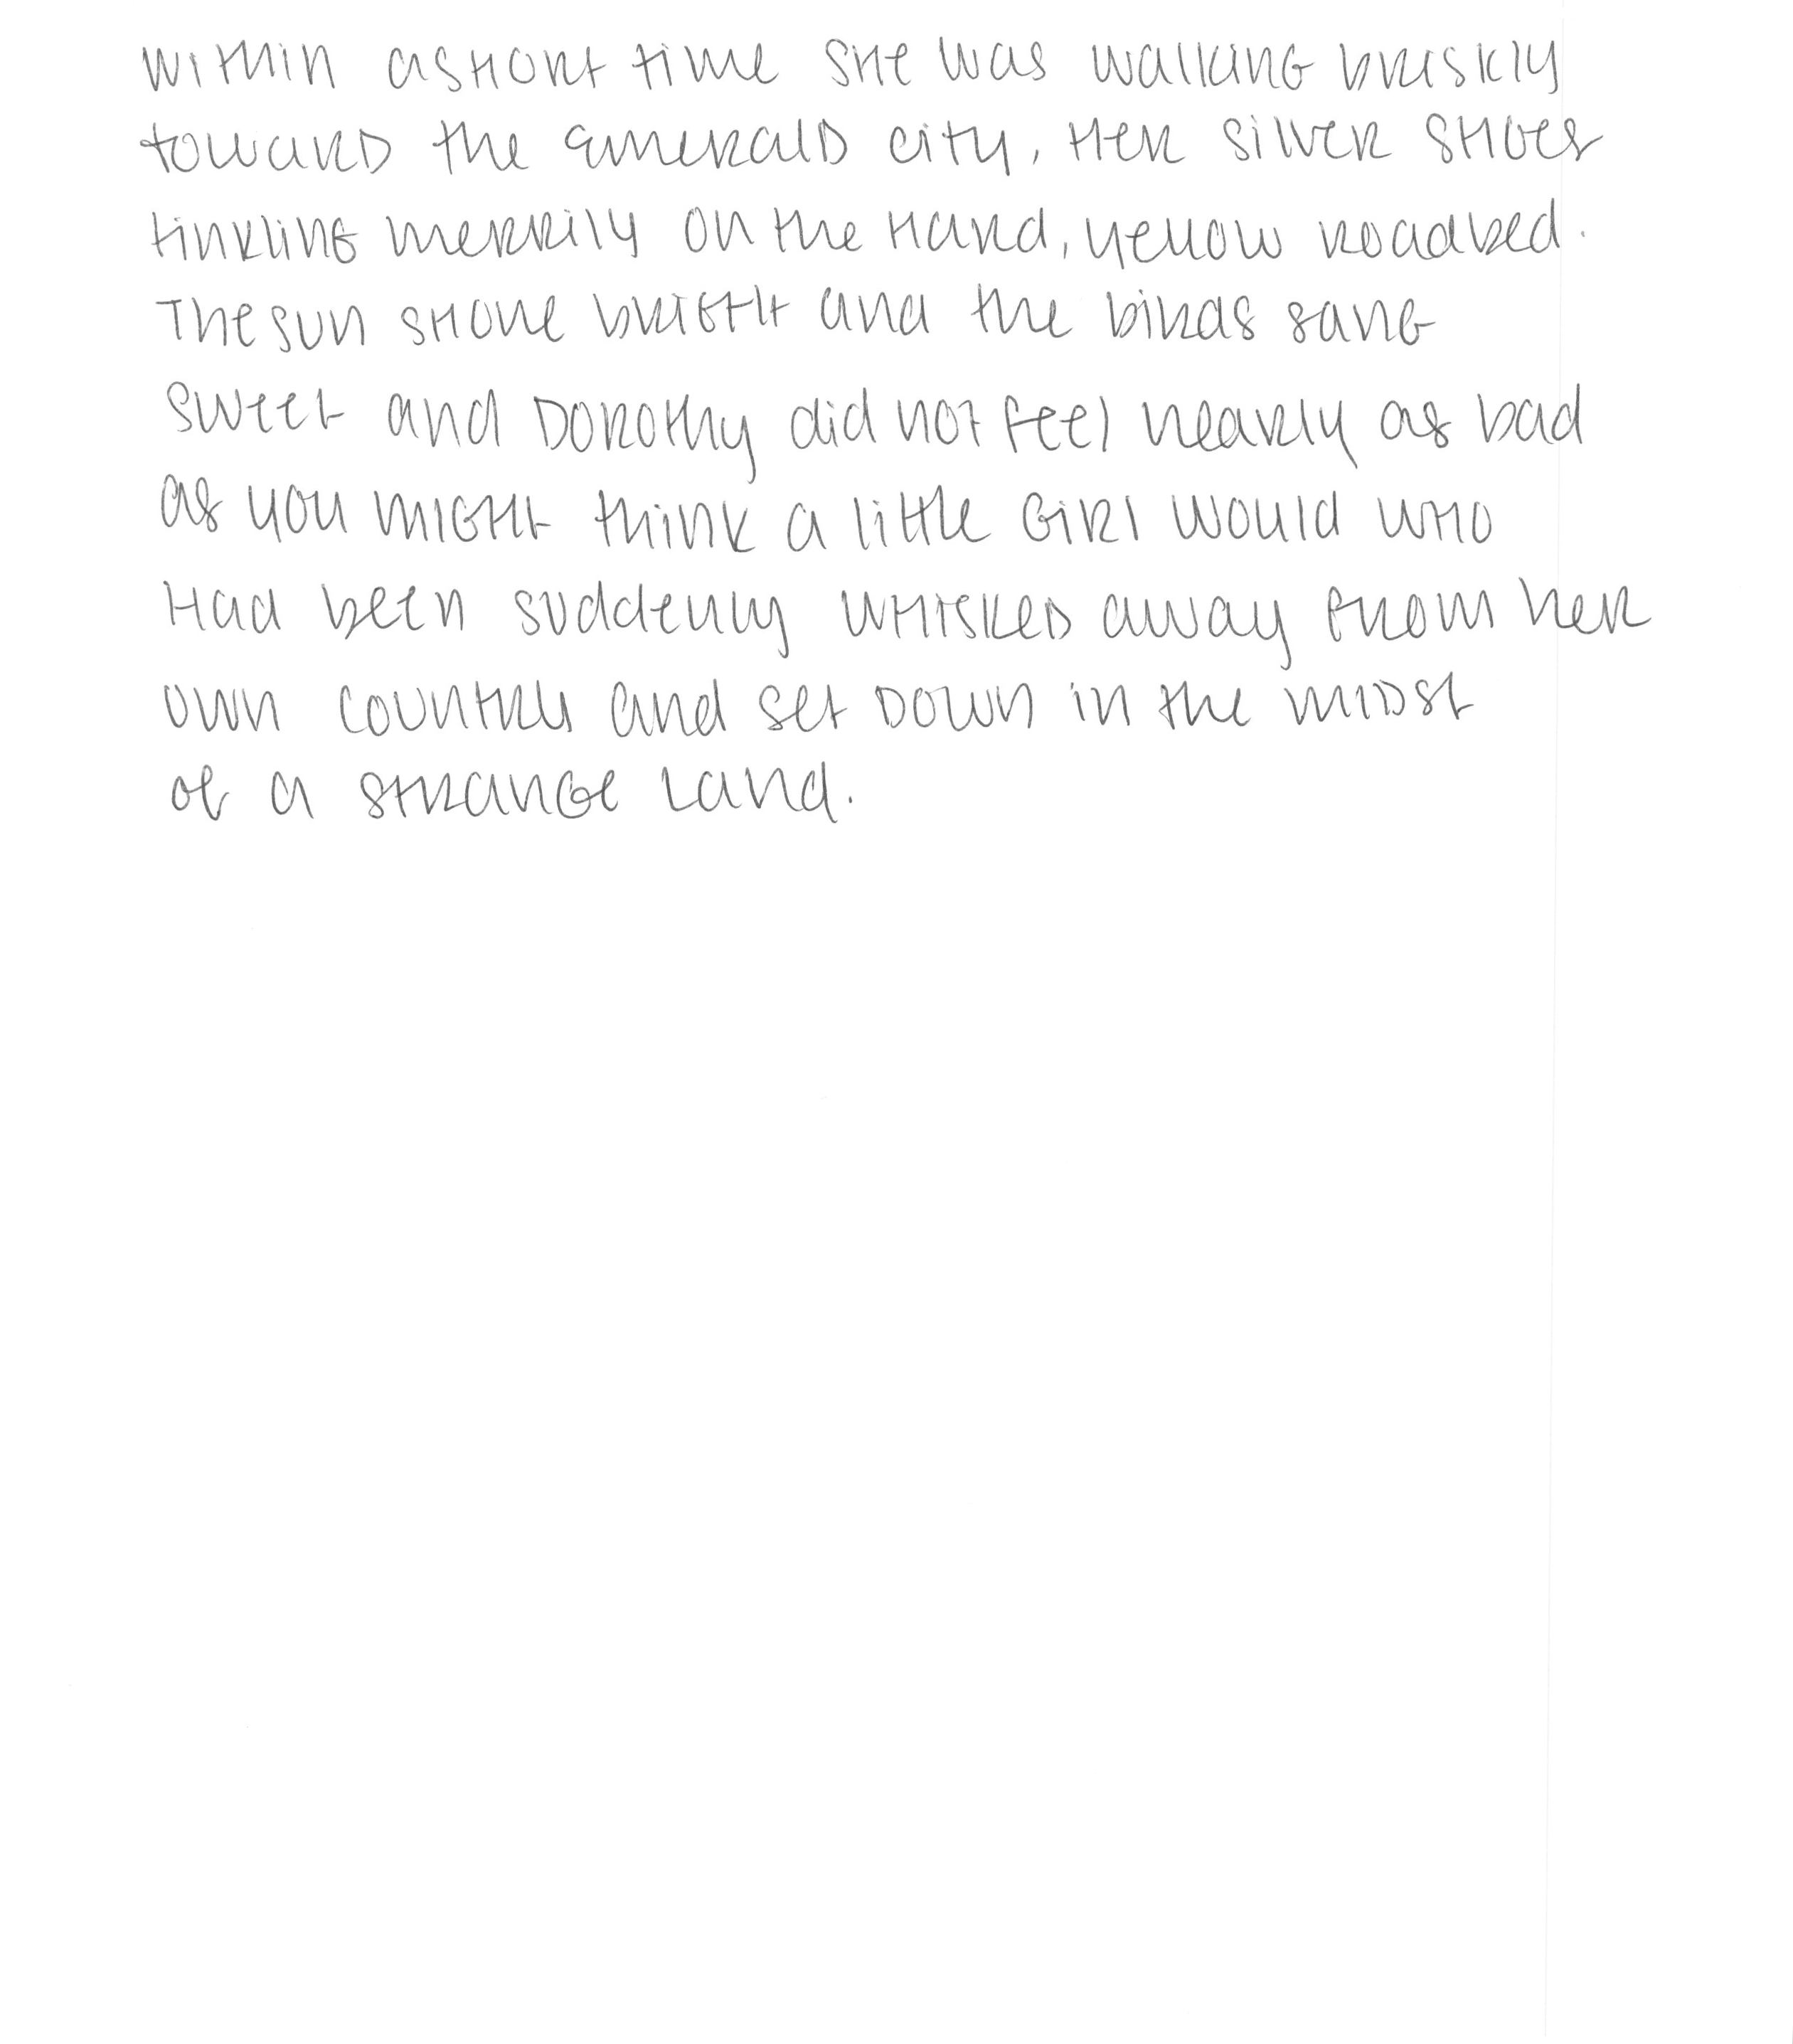 Within a short time she was walking briskly
toward the Emerald City, Her silver shoes
tinkling merrily on the hard, yellow roadbed.
The sun shone bright and the birds sang
sweet and Dorothy did not feel nearly as bad
as you might think a little girl would who
had been suddenly whisked away from her
own country and set down in the midst
of a strange land.